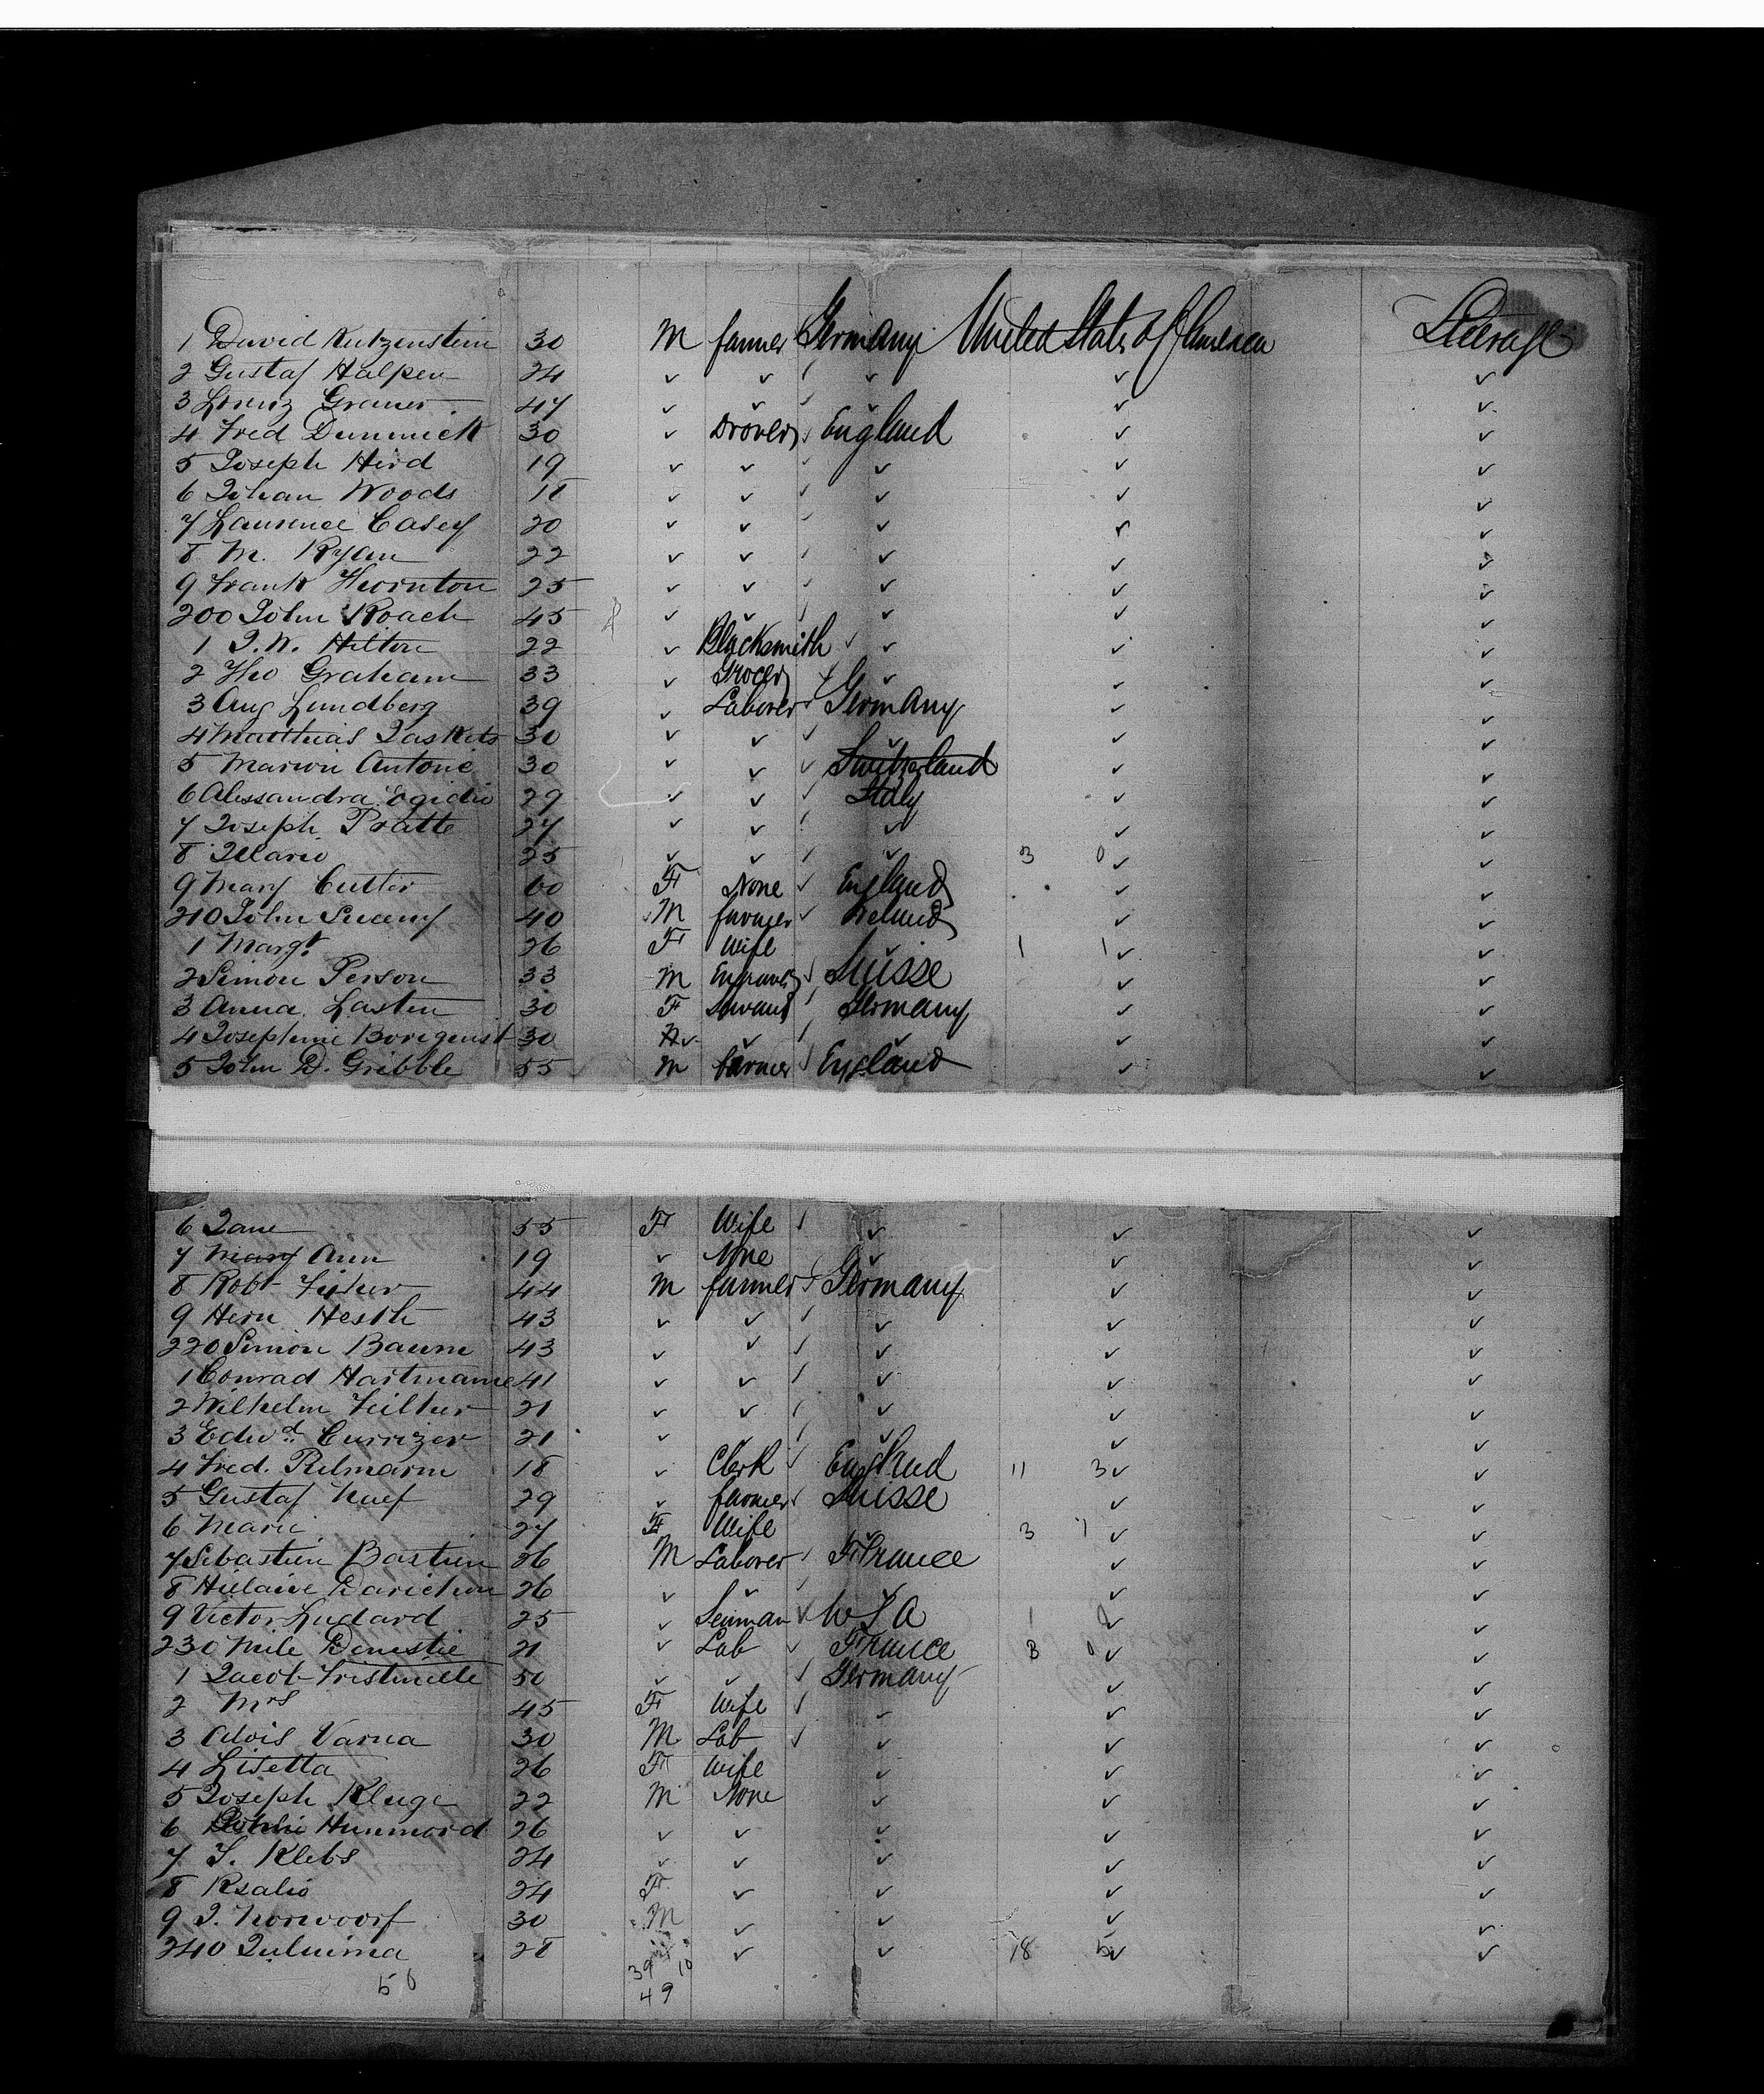 1 David Kutzenstein 30 M farmer Germany United States of America Steerage
2 Gustaf Halpen 24 ✓ ✓ ✓ ✓ ✓ ✓
3 Graner 47 ✓ ✓ ✓ ✓ ✓ ✓
4 Fred Dimmick 30 ✓ Drover ✓ England ✓ ✓
5 Joseph Hird 19 ✓ ✓ ✓ ✓ ✓ ✓
6 Johan Woods 18 ✓ ✓ ✓ ✓ ✓ ✓
7 Laurence Casey 20 ✓ ✓ ✓ ✓ ✓ ✓
8 M. Ryan 22 ✓ ✓ ✓ ✓ ✓ ✓
9 Frank Thornton 25 ✓ ✓ ✓ ✓ ✓ ✓
200 John Roach 45 ✓ ✓ ✓ ✓ ✓ ✓
1 J.W. Hilton 22 ✓ Blacksmith ✓ ✓ ✓ ✓
2 Tho Graham 33 ✓ Grocer ✓ ✓ ✓ ✓
3 Aug Lundberg 39 ✓ Laborer ✓ Germany ✓ ✓
4 Matthias 30 ✓ ✓ ✓ ✓ ✓ ✓
5 Marion Antone 30 ✓ ✓ ✓ Switzerland ✓ ✓
6 Alessandra Egidio 29 ✓ ✓ ✓ Italy ✓ ✓
7 Joseph Pratte 27 ✓ ✓ ✓ ✓ ✓ ✓
8 25 ✓ ✓ ✓ ✓ 3 0 ✓ ✓
9 Mary Cutter 60 F None ✓ England ✓ ✓
210 John 40 M farmer ✓ Ireland ✓ ✓
1 Margt 26 F Wife 1 1 ✓ ✓
2 Simon Person 33 M Engraver ✓ Suisse ✓ ✓
3 Anna Lasten 30 F Servant ✓ Germany ✓ ✓
4 Josephine 30 ✓ ✓ ✓ ✓ ✓
5 John D. Gribble 55 M farmer ✓ England ✓ ✓
6 Jane 55 F Wife ✓ ✓ ✓ ✓
7 Mary Ann 19 ✓ None ✓ ✓ ✓
8 Robt 44 M farmer ✓ Germany ✓ ✓
9 Hern Hesth 43 ✓ ✓ ✓ ✓ ✓ ✓
220 Simon Baum 43 ✓ ✓ ✓ ✓ ✓ ✓
1 Conrad Hartmann 41 ✓ ✓ ✓ ✓ ✓ ✓
2 Wilhelm 21 ✓ ✓ ✓ ✓ ✓ ✓
3 Edwd Currizer 21 ✓ ✓ ✓ ✓ ✓ ✓
4 Fred. 18 ✓ Clerk ✓ England 11 3 ✓ ✓
5 Gustaf Naef 29 ✓ farmer ✓ Suisse ✓ ✓
6 Marie 27 F Wife 3 1 ✓ ✓
7 Sebastien Bastien 26 M Laborer ✓ France ✓ ✓
8 Hielaire Darichon 26 ✓ ✓ ✓ ✓ ✓ ✓
9 Victor Ludard 25 ✓ Seaman ✓ U S A 1 0 ✓ ✓
230 Mile Domestie 21 ✓ Lab ✓ France 3 0 ✓ ✓
1 Jacob 50 ✓ ✓ ✓ Germany ✓ ✓
2 Mrs 45 F Wife ✓ ✓ ✓ ✓
3 Alois Varna 30 M Lab ✓ ✓ ✓ ✓
4 Lisetta 26 F Wife ✓ ✓ ✓
5 Joseph Kluge 22 M None ✓ ✓ ✓
6 Hummord 26 ✓ ✓ ✓ ✓ ✓
7 S. Klebs 24 ✓ ✓ ✓ ✓ ✓
8 Rsalio 24 F ✓ ✓ ✓ ✓
9 J. Norwoorf 30 M ✓ ✓ ✓ ✓
240 Juluima 28 ✓ ✓ 18 5 ✓ ✓
50 39 10
49